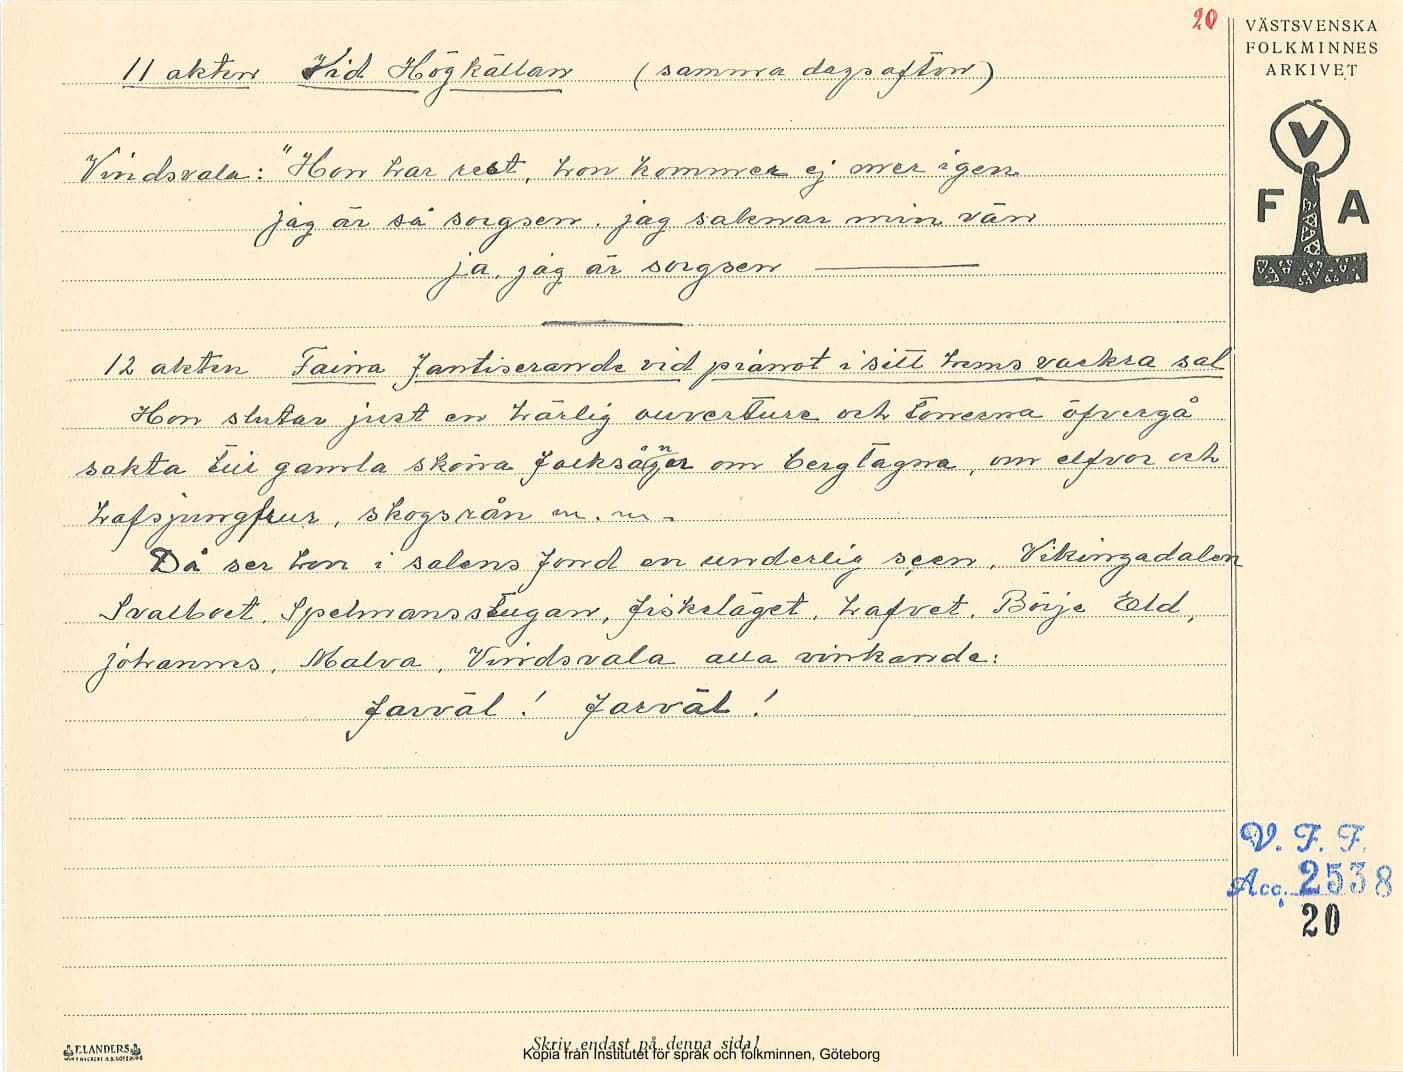 20
VÄSTSVENSKA
FOLKMINNES
ARKIVET
V
F A
11 akten Vid Högkällan (samma dags afton)
Vindsvala: "Hon har rest, hon kommer ej mer igen
jag är så sorgsen. jag saknar min vän
ja, jag är sorgsen
12 akten Faina fantiserande vid pianot i sitt hems vackra sal
Hon slutar just en härlig ouverture och tonerna öfvergå
sakta till gamla sköna folksånger om bergtagna, om elfvor och
hafsjungfrur, skogsrån m.m.
Då ser hon i salens fond en underlig scen. Vikingadalen
Svalboet, Spelmansstugan, fiskeläget, hafvet, Börje Eld,
johannes, Malva, Vindsvala alla vinkande:
farväl! farväl!
V. F. F.
Acc. 2538
20
ELANDERS
Skriv endast på denna sida!
Kopia från Institutet för språk och folkminnen, Göteborg